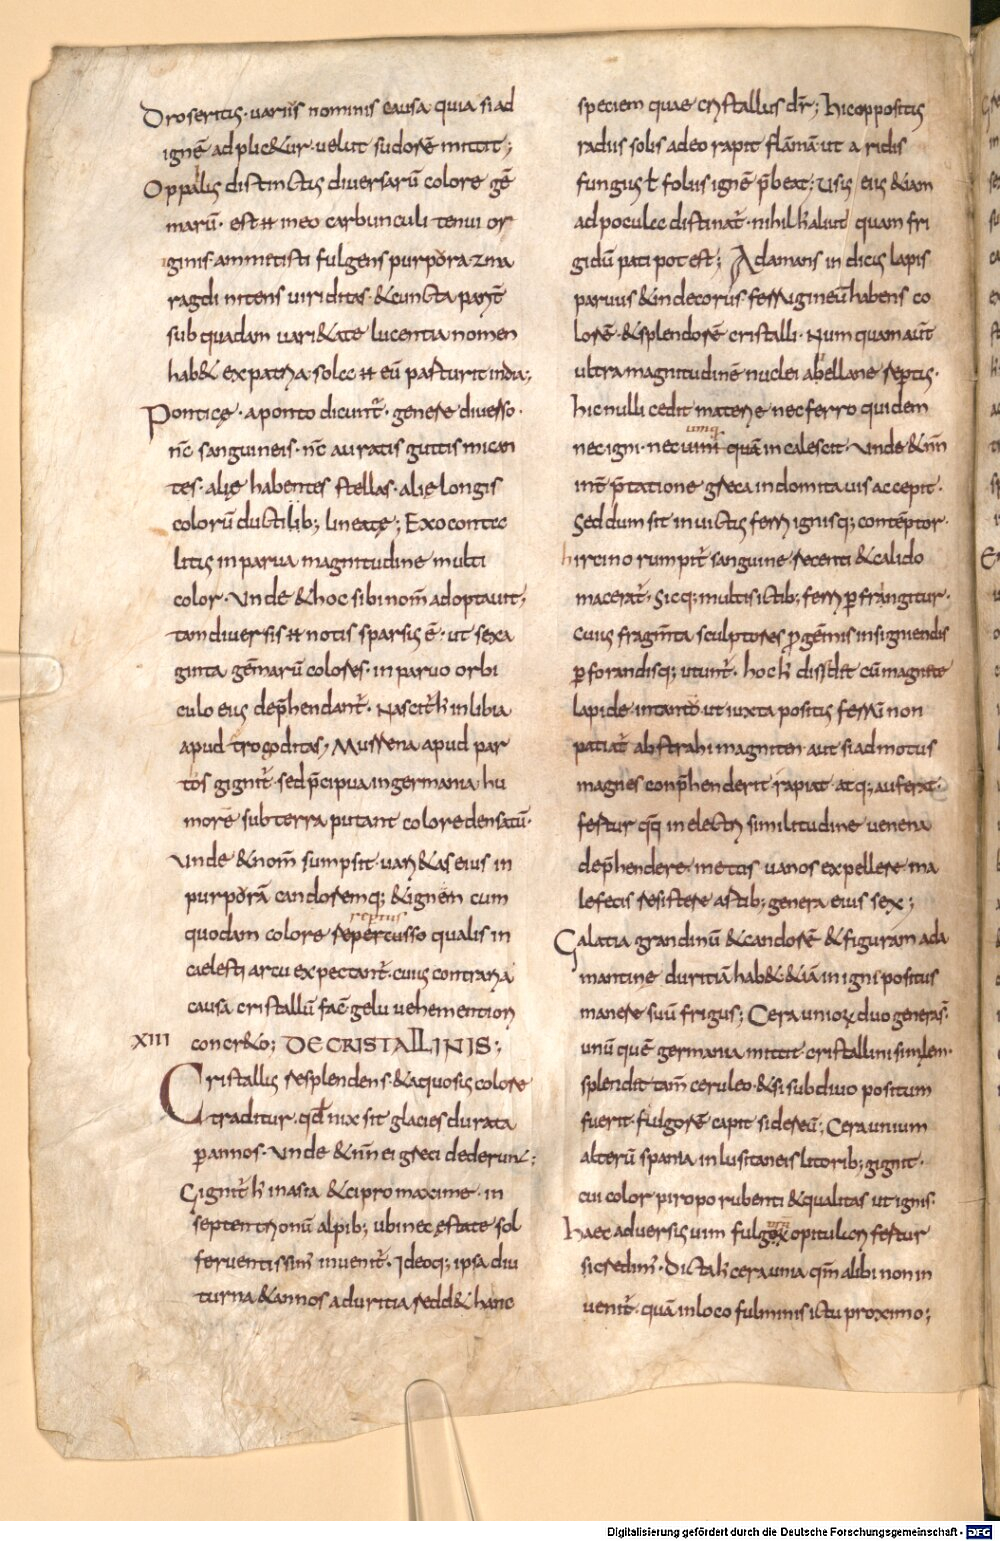 Droseritis· variis nominis causa quia si ad
ignē adplic&ur· uelut sudorē mittit;
Oppalus distinctus diuersarū colore gē
marū· est ħ in eo carbunculi tenui or
ginis ammetisti fulgens purpora zma
ragdi nitens uiriditas· &cuncta pariť
sub quadam uari&ate lucentia nomen
hab& ex patria· solec ħ eū pasturit india;
Ponticę· a ponto dicunt̄· genere diuerso·
nc̄ sanguineis· nc̄ auratis guttis mican
tes· alię habentes stellas· alię longis
colorū ductilib; lineatę; Exoconte
litus in parua magnitudine multi
color· Vnde &hoc sibi nom̄ adoptauit;
tam diuersis ħ notis sparsus ē· ut sexa
ginta gēmarū colores· in paruo orbi
culo eius dep̄hendant̄· Nascit̄ ħ in libia
apud trogoditas; Mussena apud par
tos gignit̄· sed p̄cipua in germania· hu
morē sub terra putant colore densatū·
Vnde &nom̄ sumpsit· uari&as eius in
purporā candoremq; &ignem cum
reptus
quodam colore repercusso qualis in
caelesti arcu expectant̄· cuius contraria
causa cristallū fac̄ gelu uehementiori
XIII concr&o; DE CRISTALLINIS;
Cristallus resplendens· &aquosus colore
traditur· qđ nix sit glacies durata
p annos· Vnde &nn̄ ei greci dederunt;
Gignit̄ ħ in asia &cipro maxime· in
septentrionū alpib; ubi nec ęstate sol
feruentissim̄ inuenit̄· Ideoq; ipsa diu
turna &annos a duritia redd& hanc
speciem quae cristallus dr̄; Hic oppositus
radiis solis adeo rapit flāmā ut a ridis
fungus ł folius ignē p̄beat; Usus eius &iam
ad pocula distinat̄· nihil ħ aliut quam fri
gidū pati potest; Adamans indicus lapis
paruus &indecorus ferrugineū habens co
lorē· &splendorē cristalli· Numquam aut̄
ultra magnitudinē nuclei abellane reptus·
hic nulli cedit materie nec ferro quidem
umq
nec igni· nec uim quā incalescit· Vnde &nn̄
int̄ p̄tatione greca indomita uis accepit·
Sed dum sit inuictus ferri ignisq; contēptor·
hircino rumpit̄ sanguine recenti &calido
macerat̄· Sicq; multis ictib; ferri p frangitur·
cuius fragm̄ta sculptores p gēmis insigniendis
pforandisq; utunt̄· hoc ħ dissidet cū magnete
lapide· in tantō ut iuxta positus ferrū non
patiat̄ abstrahi magniten aut si admotus
magnes conp̄henderit rapiat atq; auferat·
fertur qq̄ in electri similitudine uenena
dep̄hendere· metus uanos expellere ma
leficis resistere astib; genera eius sex;
Galatia grandinū &candorē &figuram ada
mantine duritiā hab& &iā in igni positus
manere suū frigus; Ceraunioꝝ duo genera s̄·
unū quē germania mittit· cristallini similem·
splendit tam̄ ceruleo· &si sub diuo positum
fuerit· fulgorē capit sidereū; Ceraunium
alterū spania in lusitaneis litorib; gignit·
cui color piropo rubenti &qualitas ut ignis·
Haec aduersus uim fulgoꝝ opitulari fertur
si credim̄· Dicta ħ ceraunia qm̄ alibi non in
uenit̄· quā in loco fulminis ictu proximo;
Digitalisierung gefördert durch die Deutsche Forschungsgemeinschaft - DFG